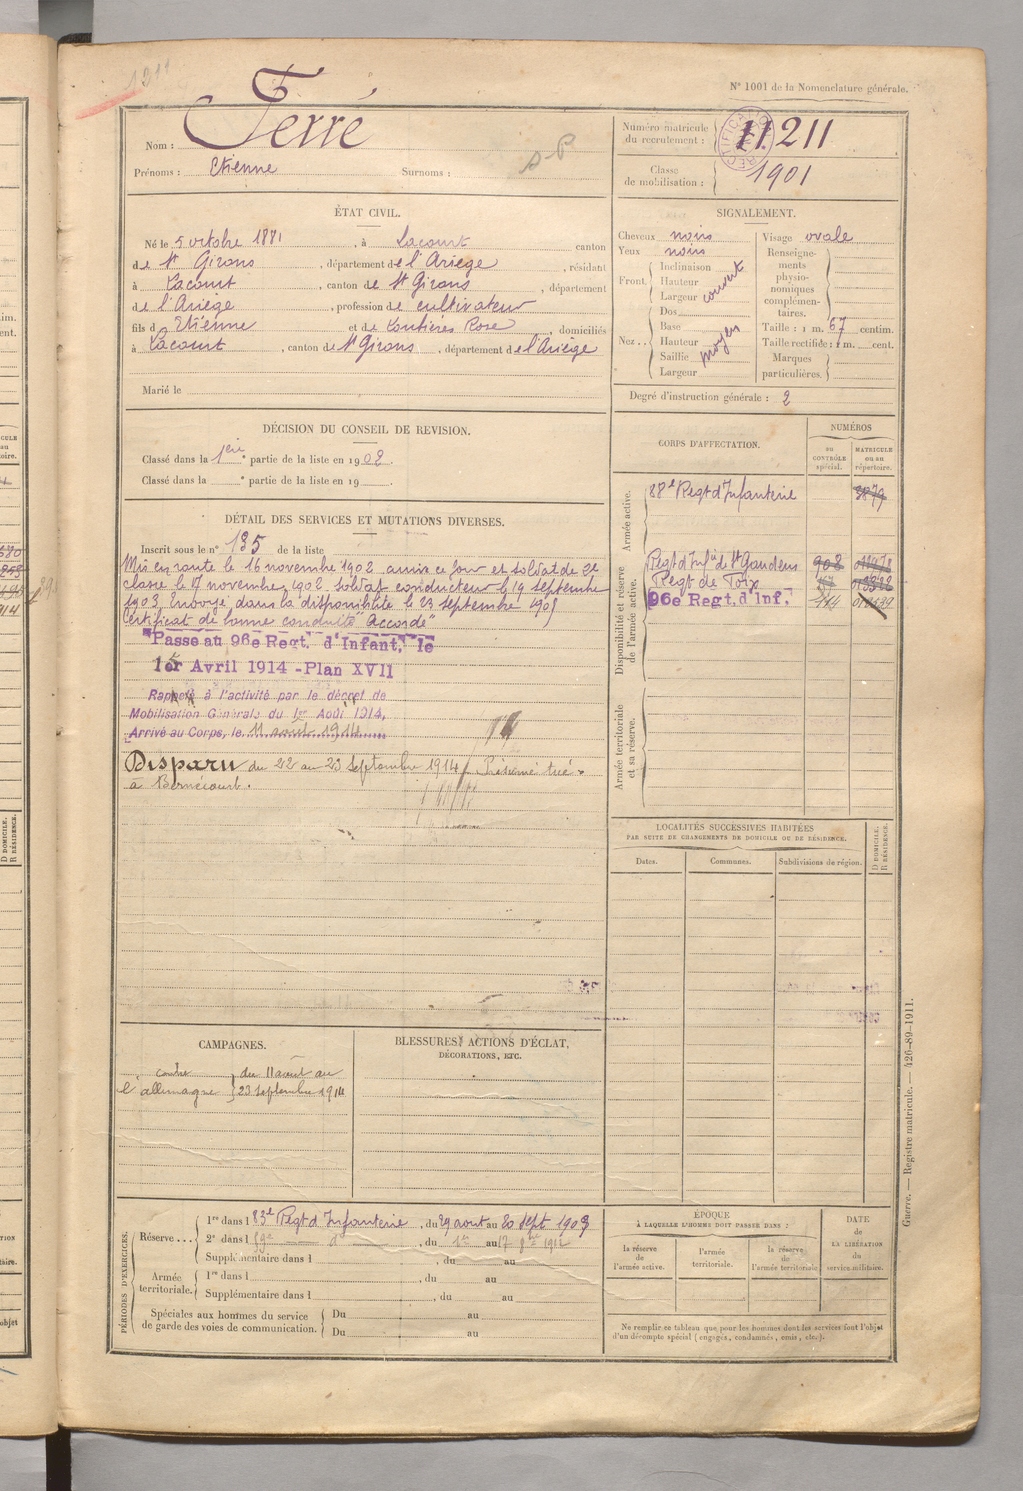 1911
N° 1001 de la Nomenclature générale.
Nom : Ferré
Prénoms : Etienne Surnoms :
Numéro matricule du recrutement : 11.211
RECTIFICATION
Classe de mobilisation : 1901
ÉTAT CIVIL.
Né le 5 octobre 1881, à Lacourt canton
de St Girons, département de l'Ariège, résidant
à Lacourt, canton de St Girons, département
de l'Ariège, profession de cultivateur
fils d'Etienne et de Rose, domiciliés
à Lacourt, canton de St Girons, département de l'Ariège
Marié le
SIGNALEMENT.
Cheveux noirs
Yeux noirs
Front. Inclinaison
Hauteur
Largeur
couvert
Nez.. Dos
Base
Hauteur
Saillie
Largeur
moyen
Visage ovale
Renseignements physionomiques complémentaires.
Taille : 1 m. 67 centim.
Taille rectifiée : 1 m. cent.
Marques particulières.
Degré d'instruction générale : 2
DÉCISION DU CONSEIL DE REVISION.
Classé dans la 1ère partie de la liste en 1902.
Classé dans la e partie de la liste en 19
DÉTAIL DES SERVICES ET MUTATIONS DIVERSES.
Inscrit sous le n° 135 de la liste
Mis en route le 16 novembre 1902 arrivé ce jour et soldat de 2e
classe le 17 novembre 1902. Soldat conducteur le 19 septembre
1903. Envoyé dans la disponibilité le 23 septembre 1905
Certificat de bonne conduite "Accordé"
Passé au 96e Regt. d'Infant. le
1er Avril 1914 - Plan XVII
Rappelé à l'activité par le décret de
Mobilisation Générale du 1er Août 1914,
Arrivé au Corps, le 11 août 1914
Disparu du 22 au 23 Septembre 1914. Présumé tué
à Bernécourt.
CORPS D'AFFECTATION.
NUMÉROS
au CONTRÔLE spécial.
MATRICULE ou au répertoire.
Armée active.
88e Regt d'Infanterie 3879
Disponibilité et réserve de l'armée active.
Regt d'Infie de St Gaudens 908
Regt de Foix
96e Regt. d'Inf.
Armée territoriale et sa réserve.
LOCALITÉS SUCCESSIVES HABITÉES
PAR SUITE DE CHANGEMENTS DE DOMICILE OU DE RÉSIDENCE.
Dates. Communes. Subdivisions de région.
D DOMICILE.
R RÉSIDENCE.
CAMPAGNES.
contre l'allemagne } du 11 août au
23 septembre 1914
BLESSURES, ACTIONS D'ÉCLAT,
DÉCORATIONS, ETC.
PÉRIODES D'EXERCICES.
Réserve... 1re dans l 83e Regt d'Infanterie, du 29 août au 20 sept 1908
2e dans l 59e do, du 1er au 17 8bre 1912
Supplémentaire dans l , du au
Armée territoriale. 1re dans l , du au
Supplémentaire dans l , du au
Spéciales aux hommes du service de garde des voies de communication. Du au
Du au
ÉPOQUE
À LAQUELLE L'HOMME DOIT PASSER DANS :
la réserve de l'armée active.
l'armée territoriale.
la réserve de l'armée territoriale
DATE de LA LIBÉRATION du service militaire.
Ne remplir ce tableau que pour les hommes dont les services font l'objet
d'un décompte spécial (engagés, condamnés, omis, etc.).
Guerre. — Registre matricule. — 426-89-1911.